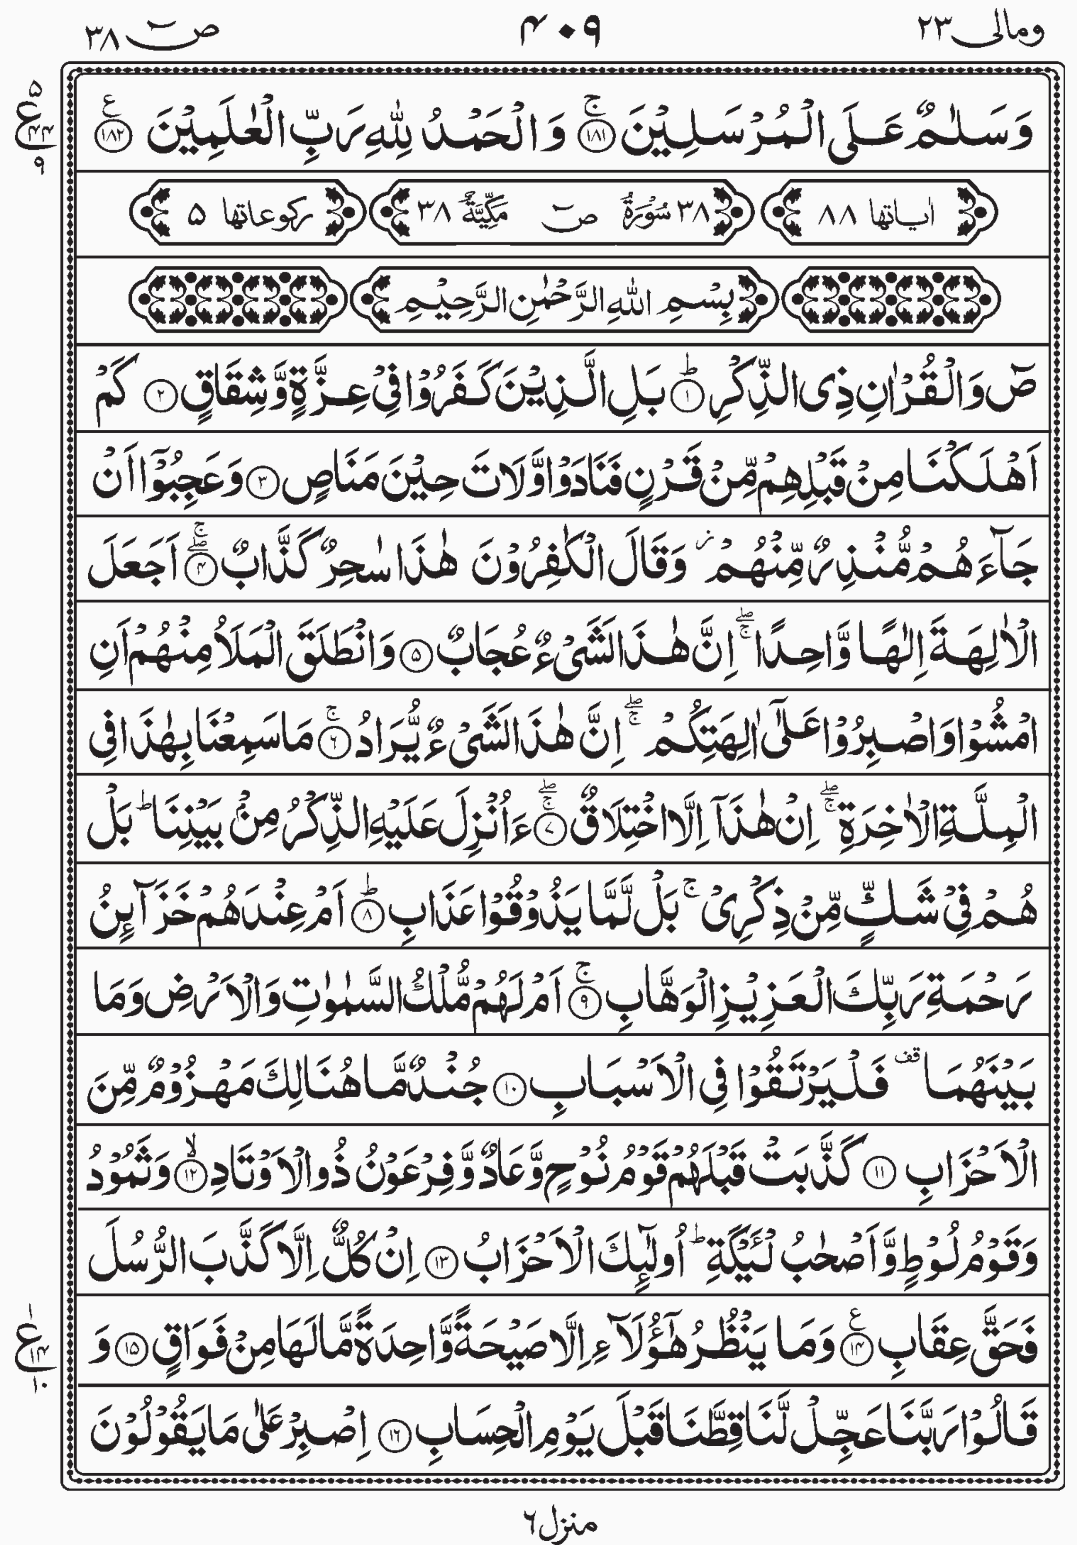 ومالی ۲۳ ۴۰۹ صٓ ۳۸
۵ ع ۴۴ ۹
وَسَلٰمٌ عَلَى الْمُرْسَلِيْنَ ۚ۝۱۸۱ وَالْحَمْدُ لِلّٰهِ رَبِّ الْعٰلَمِيْنَ ۝۱۸۲ ع
اٰیاتها ۸۸ ۳۸ سُوْرَةُ صٓ مَكِّيَّةٌ ۳۸ رکوعاتها ۵
بِسْمِ اللهِ الرَّحْمٰنِ الرَّحِيْمِ
صٓ وَالْقُرْاٰنِ ذِى الذِّكْرِ ؕ۝۱ بَلِ الَّذِيْنَ كَفَرُوْا فِىْ عِزَّةٍ وَّشِقَاقٍ ۝۲ كَمْ
اَهْلَكْنَا مِنْ قَبْلِهِمْ مِّنْ قَرْنٍ فَنَادَوْا وَّلَاتَ حِيْنَ مَنَاصٍ ۝۳ وَعَجِبُوْۤا اَنْ
جَآءَهُمْ مُّنْذِرٌ مِّنْهُمْ ز وَقَالَ الْكٰفِرُوْنَ هٰذَا سٰحِرٌ كَذَّابٌ ۖۚ۝۴ اَجَعَلَ
الْاٰلِهَةَ اِلٰهًا وَّاحِدًا ۖۚ اِنَّ هٰذَا لَشَىْءٌ عُجَابٌ ۝۵ وَانْطَلَقَ الْمَلَاُ مِنْهُمْ اَنِ
امْشُوْا وَاصْبِرُوْا عَلٰٓى اٰلِهَتِكُمْ ۖۚ اِنَّ هٰذَا لَشَىْءٌ يُّرَادُ ۚ۝۶ مَا سَمِعْنَا بِهٰذَا فِى
الْمِلَّةِ الْاٰخِرَةِ ۖۚ اِنْ هٰذَاۤ اِلَّا اخْتِلَاقٌ ۖۚ۝۷ ءَاُنْزِلَ عَلَيْهِ الذِّكْرُ مِنْۢ بَيْنِنَا ؕ بَلْ
هُمْ فِىْ شَكٍّ مِّنْ ذِكْرِىْ ۚ بَلْ لَّمَّا يَذُوْقُوْا عَذَابِ ؕ۝۸ اَمْ عِنْدَهُمْ خَزَآئِنُ
رَحْمَةِ رَبِّكَ الْعَزِيْزِ الْوَهَّابِ ۚ۝۹ اَمْ لَهُمْ مُّلْكُ السَّمٰوٰتِ وَالْاَرْضِ وَمَا
بَيْنَهُمَا قف فَلْيَرْتَقُوْا فِى الْاَسْبَابِ ۝۱۰ جُنْدٌ مَّا هُنَالِكَ مَهْزُوْمٌ مِّنَ
الْاَحْزَابِ ۝۱۱ كَذَّبَتْ قَبْلَهُمْ قَوْمُ نُوْحٍ وَّعَادٌ وَّفِرْعَوْنُ ذُو الْاَوْتَادِ ۙ۝۱۲ وَثَمُوْدُ
وَقَوْمُ لُوْطٍ وَّاَصْحٰبُ لْئَيْكَةِ ؕ اُولٰٓئِكَ الْاَحْزَابُ ۝۱۳ اِنْ كُلٌّ اِلَّا كَذَّبَ الرُّسُلَ
فَحَقَّ عِقَابِ ۝۱۴ ع وَمَا يَنْظُرُ هٰٓؤُلَآءِ اِلَّا صَيْحَةً وَّاحِدَةً مَّا لَهَا مِنْ فَوَاقٍ ۝۱۵ وَ
۱ ع ۱۴ ۱۰
قَالُوْا رَبَّنَا عَجِّلْ لَّنَا قِطَّنَا قَبْلَ يَوْمِ الْحِسَابِ ۝۱۶ اِصْبِرْ عَلٰى مَا يَقُوْلُوْنَ
منزل ۶